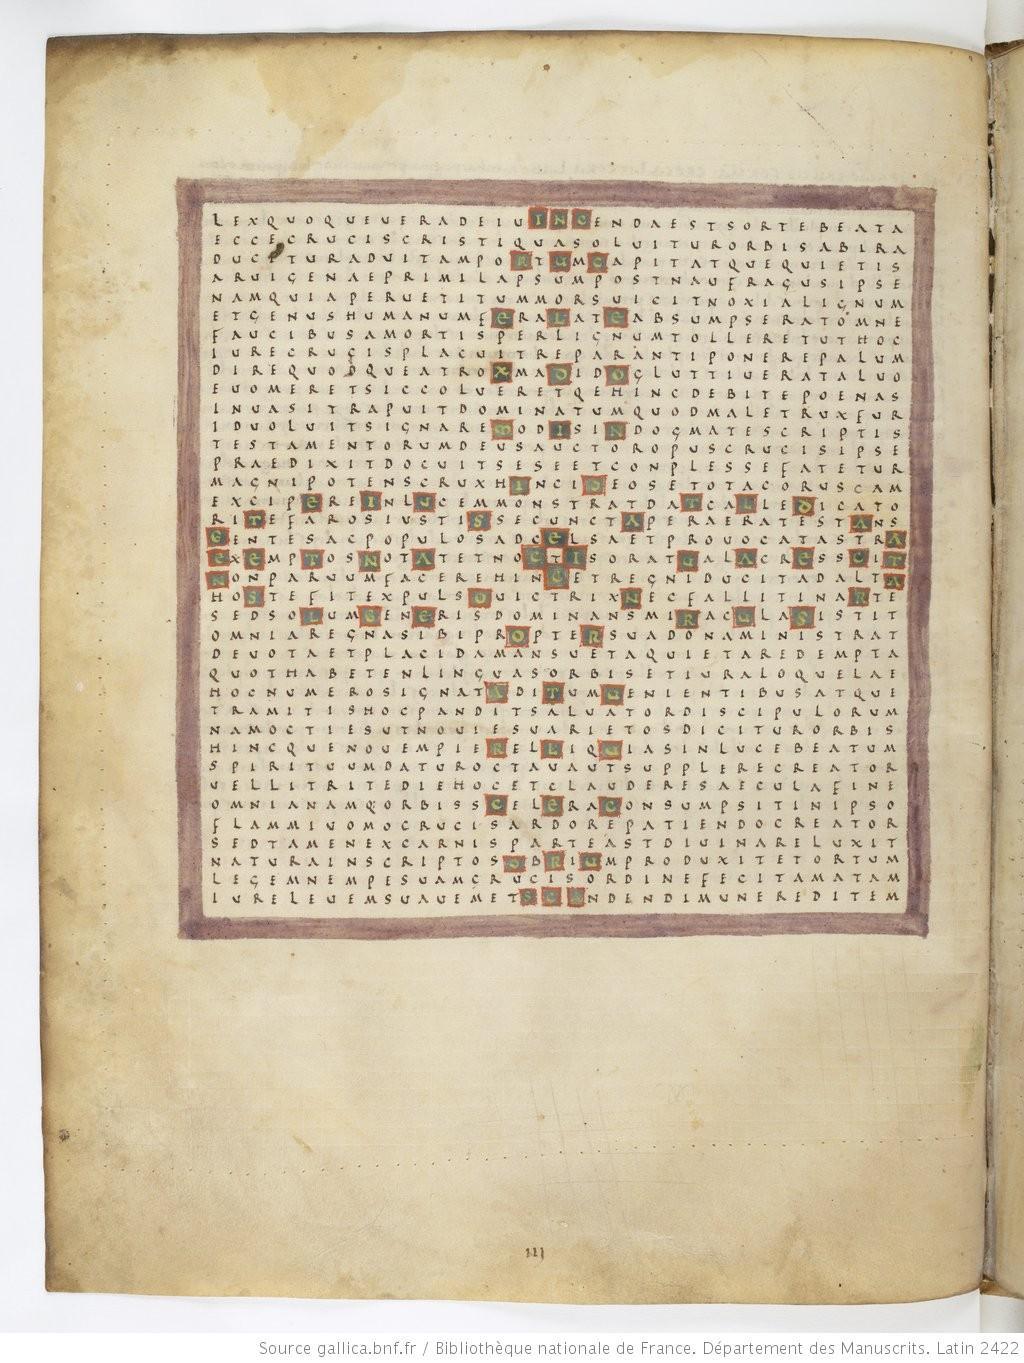 LEXQUOQUEUERADEIUINCENDAESTSORTEBEATA
ECCECRUCISCRISTIQUASOLUITURORBISABIRA
DUCETURADUITAMPORTUMCAPITATQUEQUIETIS
ARUIGENAEPRIMILAPSUMPOSTNAUFRAGUSIPSE
NAMQUIAPERUETITUMMORSUICITNOXIALIGNUM
ETGENUSHUMANUMFERALATEABSUMPSERATOMNE
FAUCIBUSAMORTISPERLIGNUMTOLLERETUTHOC
IURECRUCISPLACUITREPARANTIPONEREPALUM
DIREQUODQUEATROXMADIDOGLUTTIUERATALUO
EUOMERETSICCOLUERETQEHINCDEBITEPOENAS
INUASITRAPUITDOMINATUMQUODMALETRUXFUR
IDUOLUITSIGNAREMODISINDOGMATESCRIPTIS
TESTAMENTORUMDEUSAUCTOROPUSCRUCISIPSE
PRAEDIXITDOCUITSESEETCONPLESSEFATETUR
MAGNIPOTENSCRUXHINCIDEOSETOTACORUSCAM
EXCIPEREINLUCEMMONSTRATDATCALLEDICATO
RITEFAROSIUSTISSECUNCTAPERAERATESTANS
GENTESACPOPULOSADCELSAETPROUOCATASTRA
EXEMPTOSNOTATETNOCTISORATUALACRESSCIT
NONPARUUMFACEREHINCETREGNIDUCITADALTA
HOSTEFITEXPULSOUICTRIXNECFALLITINARTE
SEDSOLUMGENERISDOMINANSMIRACULASISTIT
OMNIAREGNASIBIPROPTERSUADONAMINISTRAT
DEUOTAETPLACIDAMANSUETAQUIETAREDEMPTA
QUOTHABETENLINGUASORBISETIURALOQUELAE
HOCNUMEROSIGNATADITUMUENIENTIBUSATQUE
TRAMITISHOCPANDITSALUATORDISCIPULORUM
NAMOCTIESUTNOUIESUARIETOSDICITURORBIS
HINCQUENOUEMPIERELLIQUIASINLUCEBEATUM
SPIRITUUMDATUROCTAUAUTSUPPLERECREATOR
UELLITRITEDIEHOCETCLAUDERESAECULAFINE
OMNIANAMQORBISSCELERACONSUMPSITINIPSO
FLAMMIUOMOCRUCISARDOREPATIENDOCREATOR
SEDTAMENEXCARNISPARTEASTDIUINARELUXIT
NATURAINSCRIPTOSOBRIUMPRODUXITETORTUM
LEGEMNEMPESUAMCRUCISORDINEFECITAMATAM
IURELEUEMSUAUEMETSCANDENDIMUNEREDITEM
Source gallica.bnf.fr / Bibliothèque nationale de France. Département des Manuscrits. Latin 2422